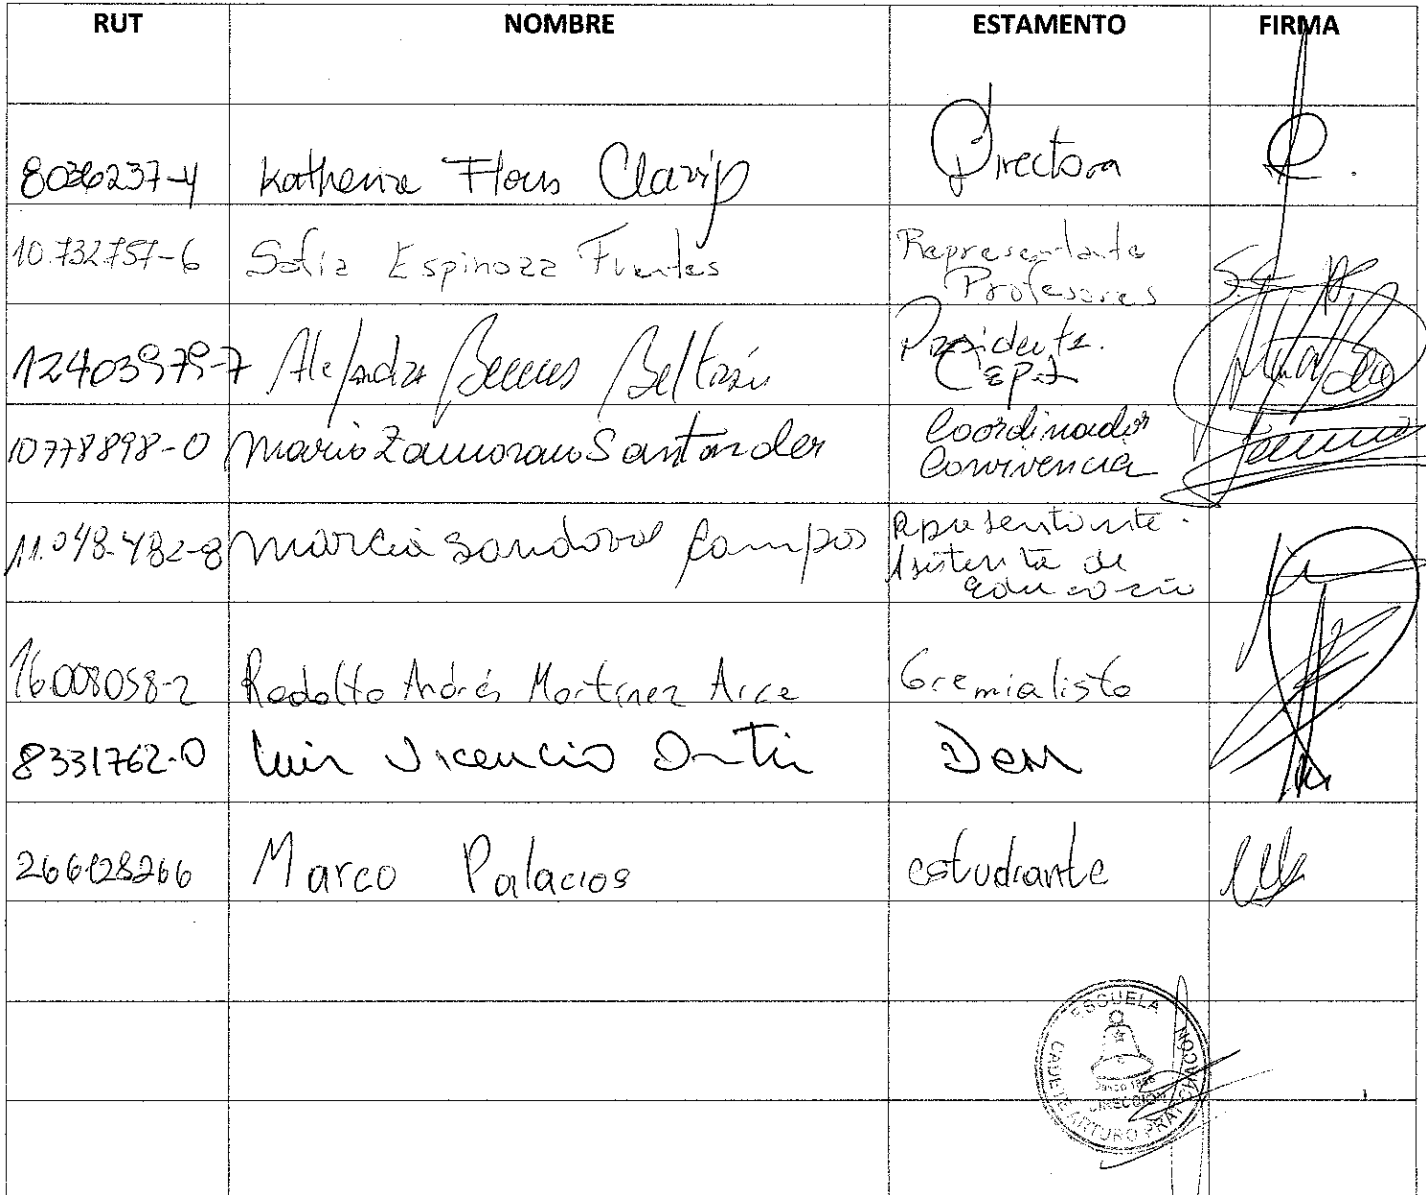 RUT NOMBRE ESTAMENTO FIRMA
8036237-4 Katherine Flores Clavijo Directora
10.732757-6 Sofia Espinoza Fuentes Representante Profesores
12403979-7 Alejandra Beltrán Presidenta.
10778898-0 Mario Zamorano Santander Coordinador Convivencia
11.048.482-8 Marcia Sandoval Campos Representante Asistente de educación
16.008058-2 Rodolfo Andrés Martínez Arce Gremialista
8331762-0 Luis Vicencio Dem
Marco Palacios estudiante
ESCUELA
CADETE ARTURO PRAT CHACON
DIRECCION